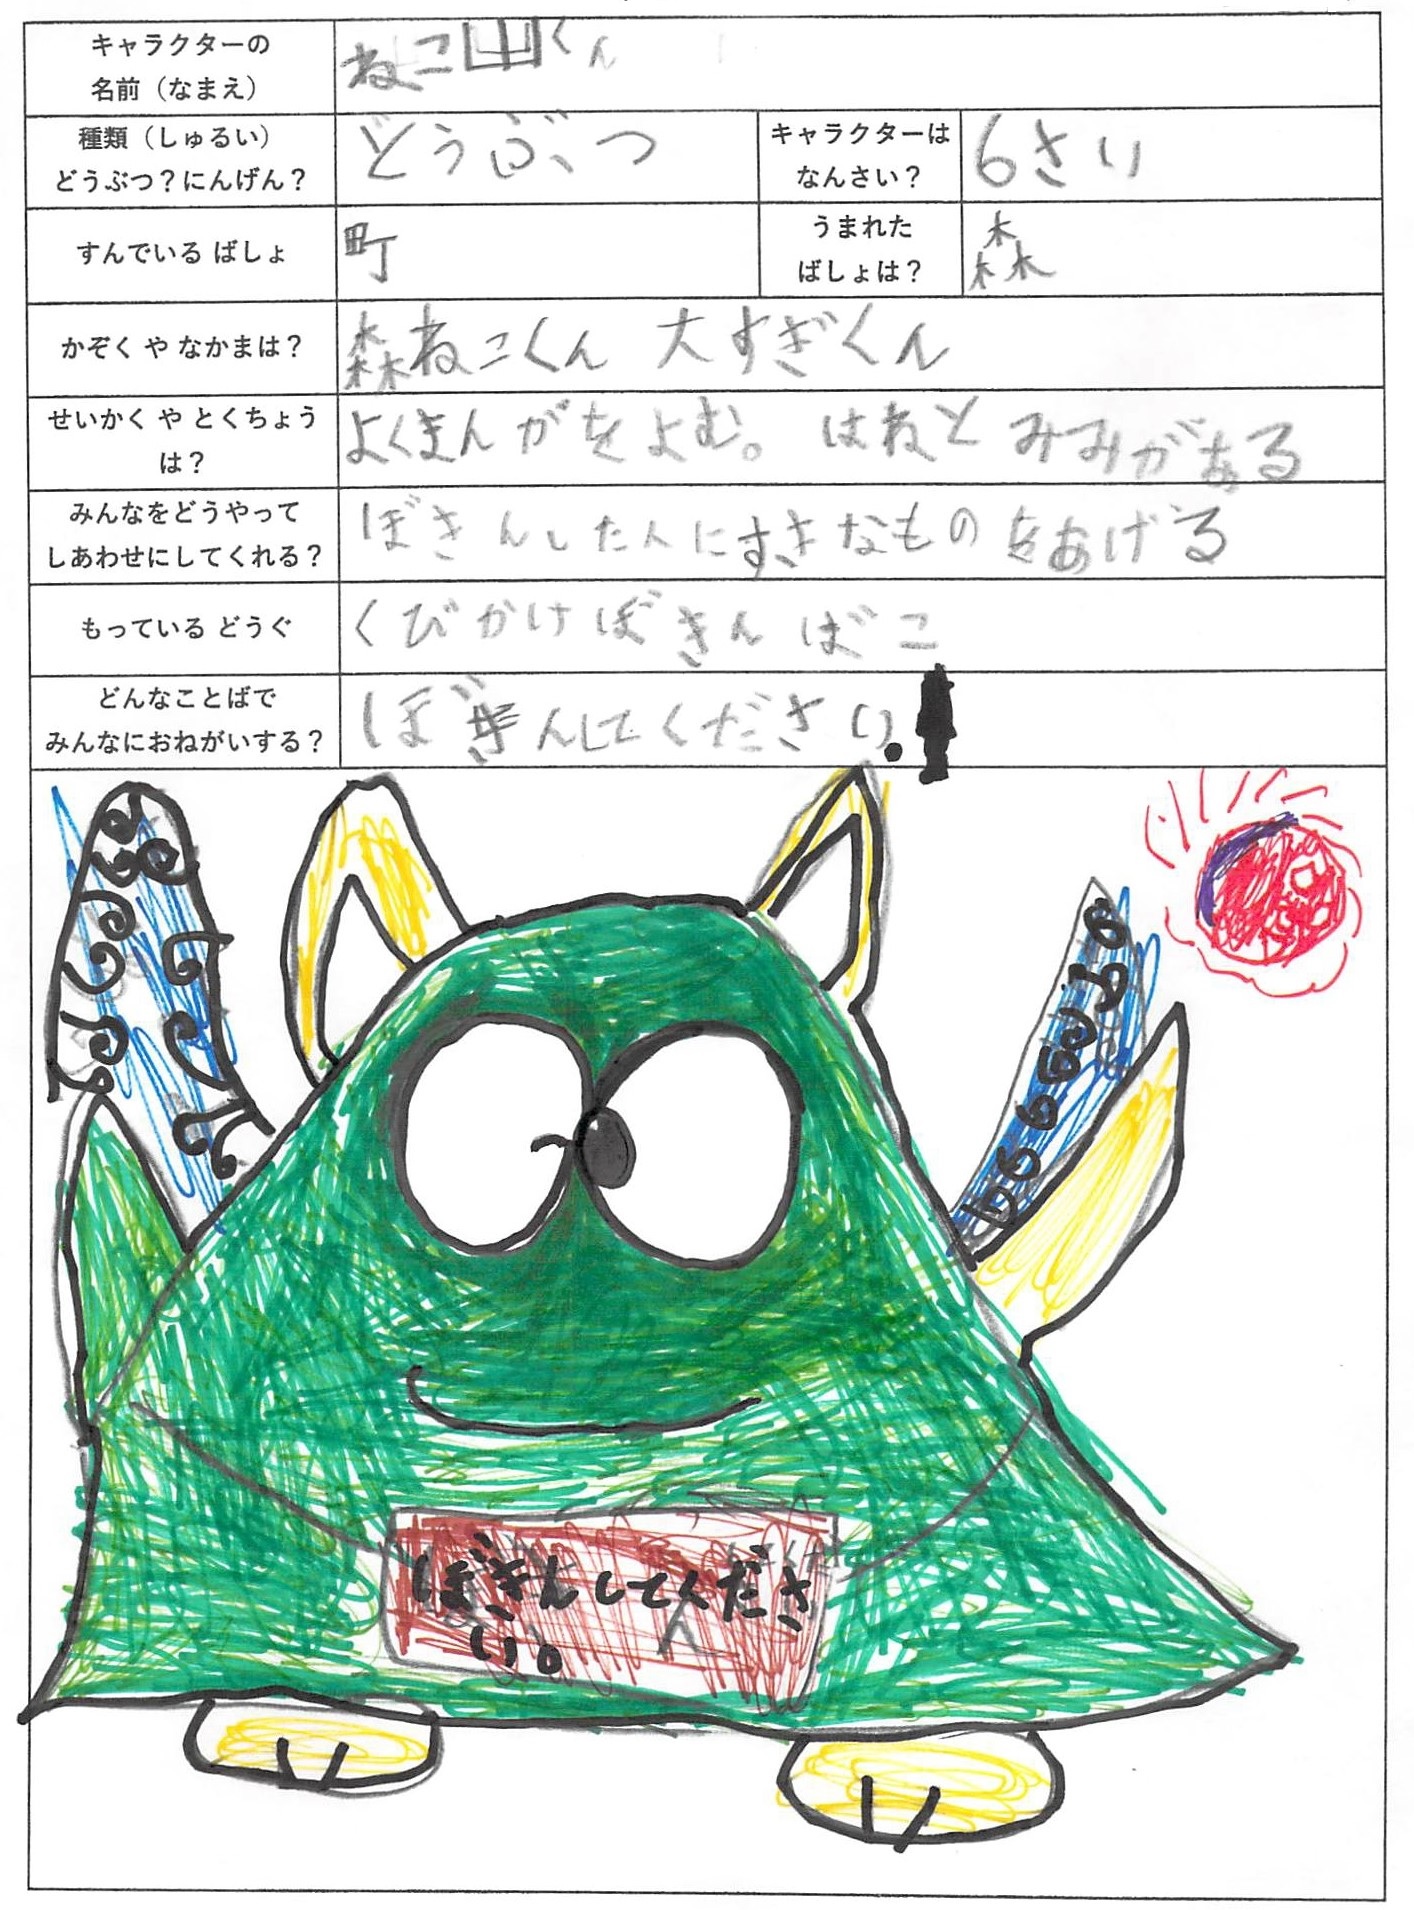 キャラクターの
名前（なまえ）
ねこ山くん
種類（しゅるい）
どうぶつ？にんげん？
どうぶつ
キャラクターは
なんさい？
6さい
すんでいる ばしょ
町
うまれた
ばしょは？
森
かぞく や なかまは？
森ねこくん 大すぎくん
せいかく や とくちょう
は？
よくまんがをよむ。 はねと みみがある
みんなをどうやって
しあわせにしてくれる？
ぼきんした人にすきなものをあげる
もっている どうぐ
くびかけぼきんばこ
どんなことばで
みんなにおねがいする？
ぼきんしてください。
ぼきんしてくださ
い。